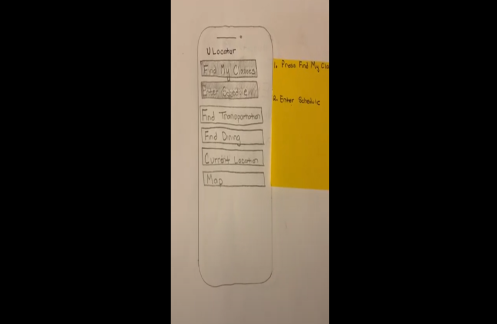 U Locator
Find My Classes
Enter Schedule
Find Transportation
Find Dining
Current Location
Map
1. Press Find My Clas
2. Enter Schedule